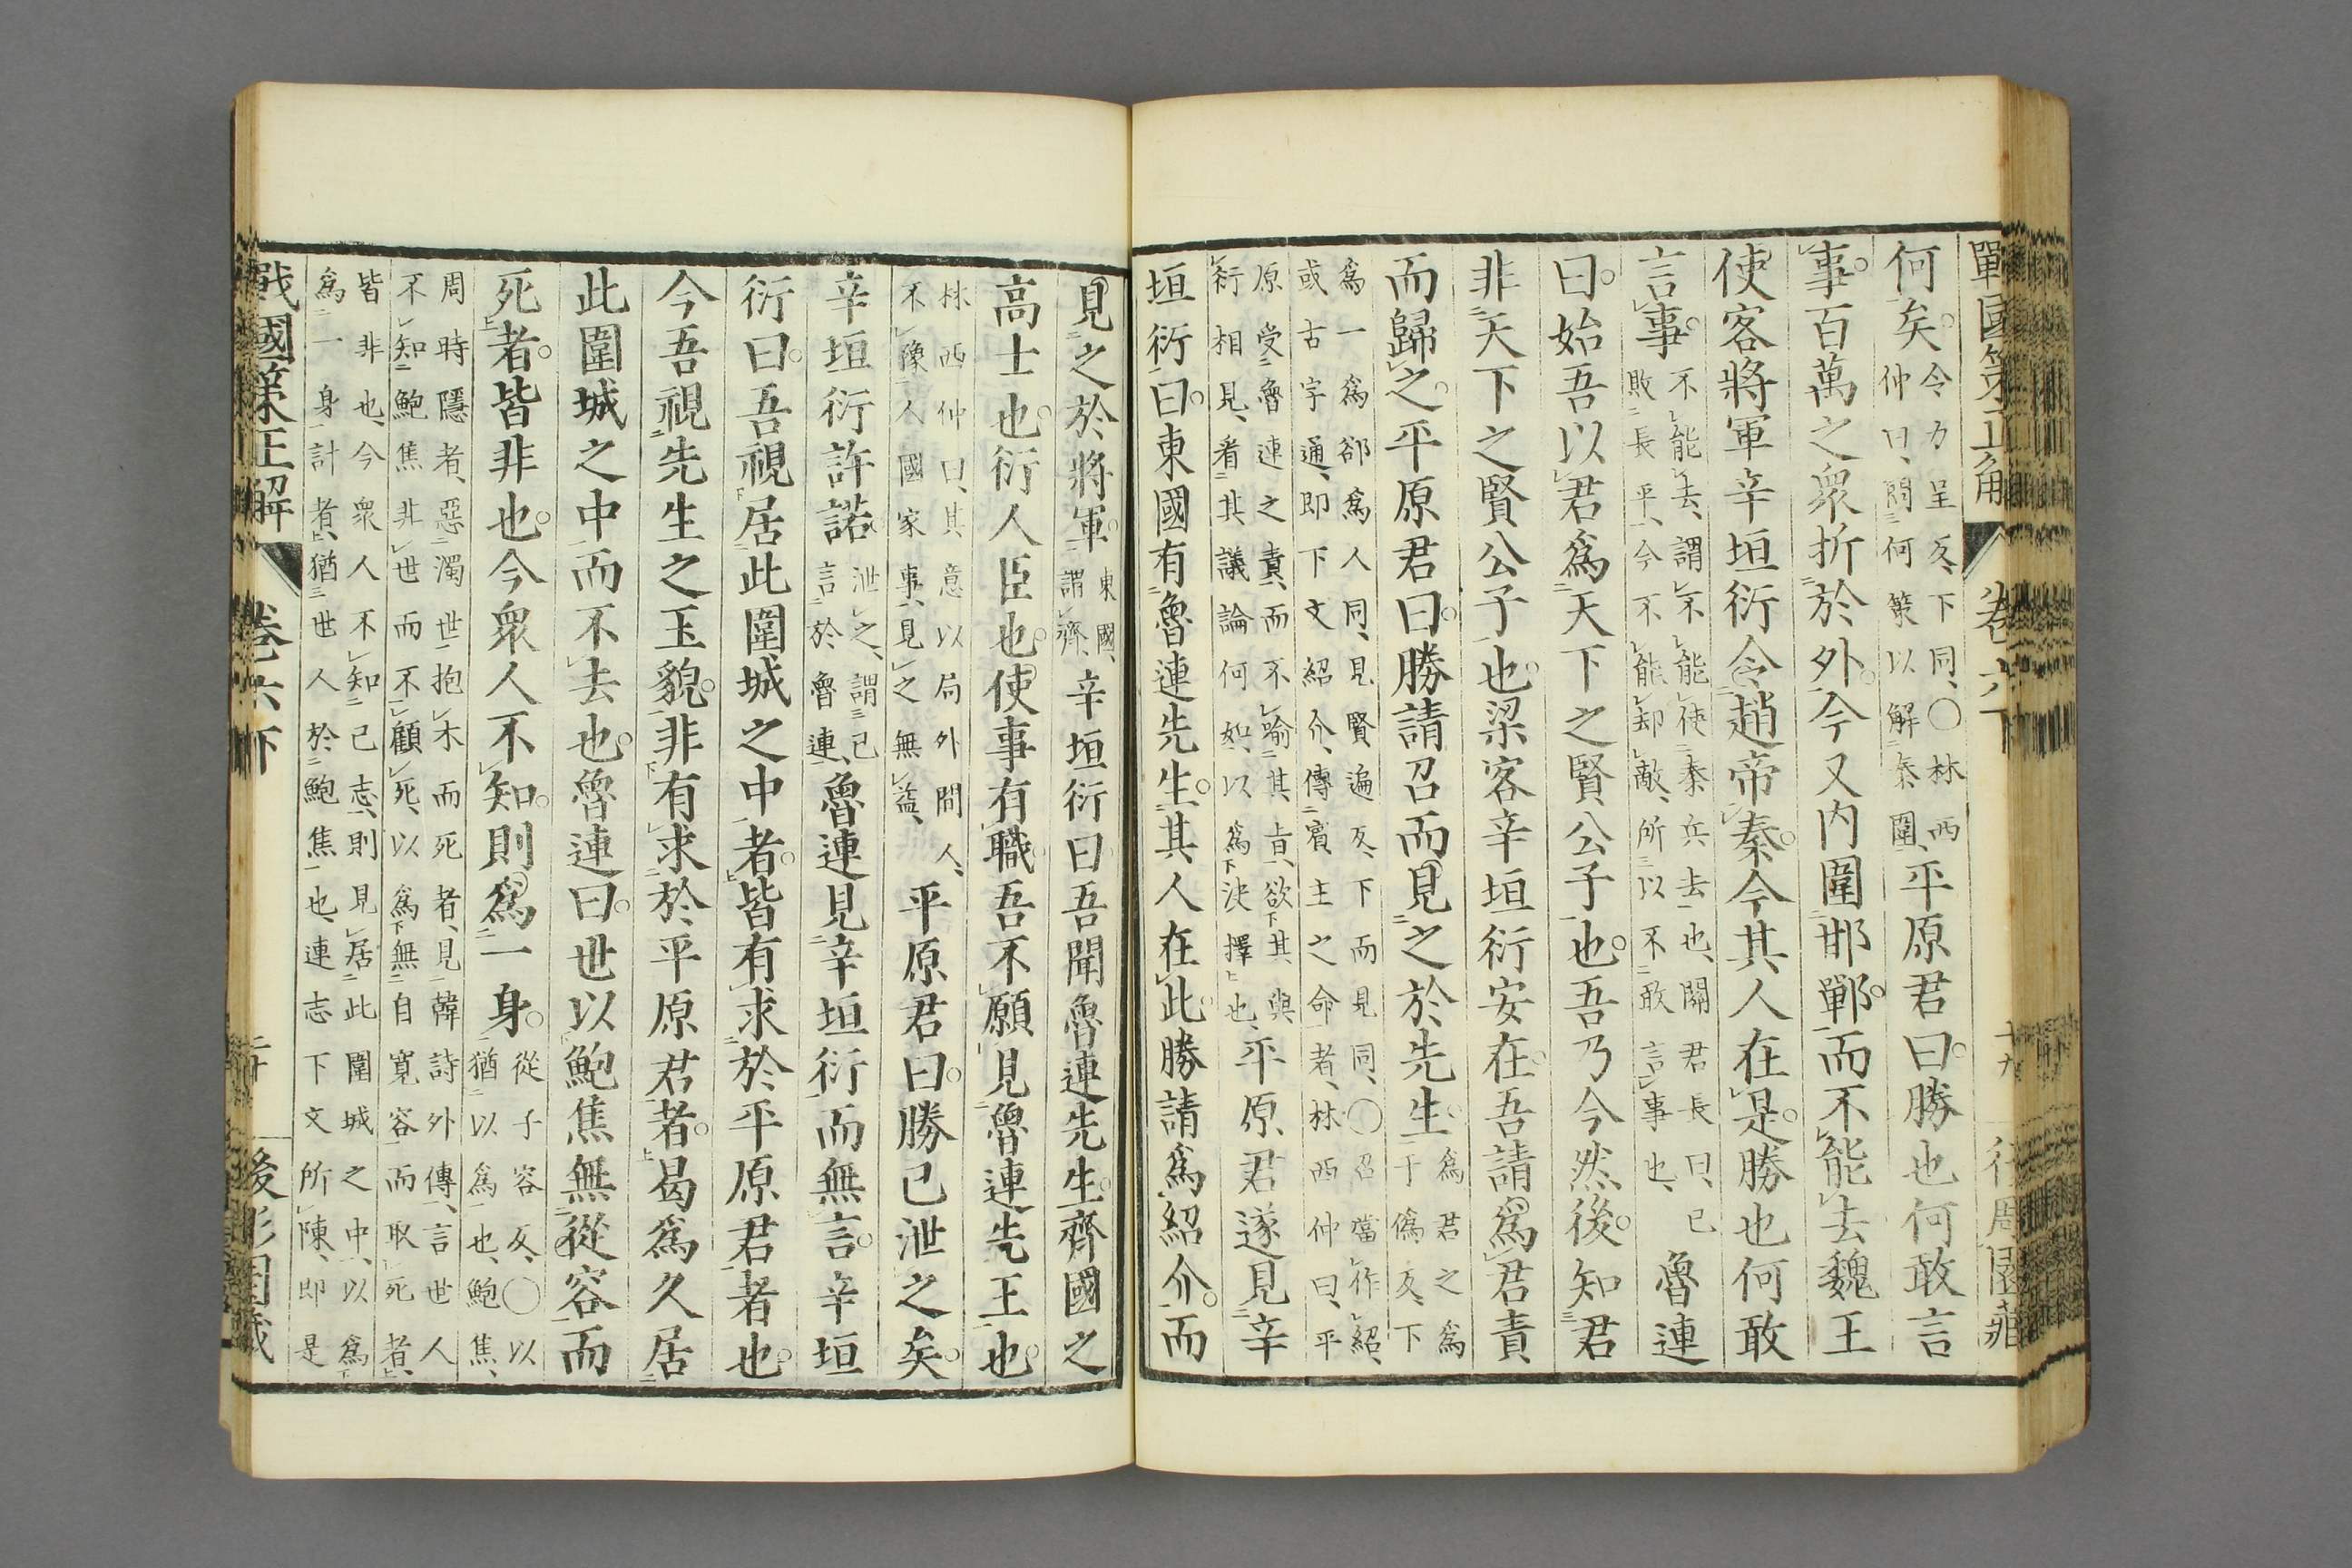 戰國策正解 卷六下 十九 後彫園藏
何矣。令力呈反、下同、○林西
仲曰、問何策以解秦圍、平原君曰。勝也何敢言
事。百萬之衆折於外。今又内圍邯鄲。而不能去。魏王
使客將軍辛垣衍令趙帝秦。今其人在是。勝也何敢
言事。不能去、謂不能使秦兵去也、關君長曰、已
敗長平、今不能却敵、所以不敢言事也、魯連
曰。始吾以君爲天下之賢公子也。吾乃今然後。知君
非天下之賢公子也。梁客辛垣衍安在。吾請爲君責
而歸之。平原君曰。勝請召而見之於先生。爲君之爲
于僞反、下
爲一爲郤爲人同、見賢遍反、下而見同、○召當作紹、
或古字通、即下文紹介、傳賓主之命者、林西仲曰、平
原受魯連之責、而不喻其旨、欲其與
衍相見、看其議論何如、以爲決擇也、平原君遂見辛
垣衍曰。東國有魯連先生。其人在此。勝請爲紹介。而
見之於將軍。東國、
謂齊、辛垣衍曰吾聞魯連先生。齊國之
高士也。衍人臣也。使事有職。吾不願見魯連先王也。
林西仲曰、其意以局外間人、
不豫人國家事、見之無益、平原君曰。勝已泄之矣。
辛垣衍許諾泄之、謂已
言於魯連、魯連見辛垣衍而無言。辛垣
衍曰。吾視居此圍城之中者。皆有求於平原君者也。
今吾視先生之玉貌。非有求於平原君者。曷爲久居
此圍城之中而不去也。魯連曰。世以鮑焦無從容而
死者。皆非也。今衆人不知。則爲一身。從子容反、○以
猶以爲也、鮑焦、
周時隱者、惡濁世、抱木而死者、見韓詩外傳、言世人
不知鮑焦非世而不顧死、以爲無自寬容而取死者、
皆非也、今衆人不知己志、則見居此圍城之中、以爲
爲一身計者、猶世人於鮑焦也、連志下文所陳、即是
戰國策正解 卷六下 二十 後彫園藏